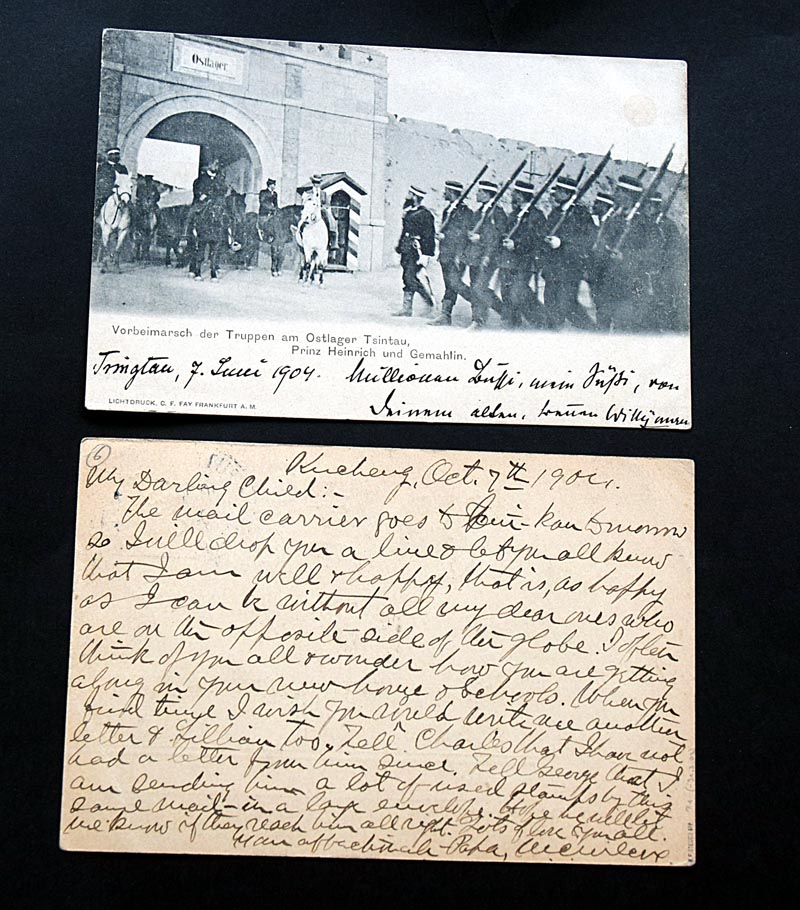 Ostlager
Vorbeimarsch der Truppen am Ostlager Tsintau,
Prinz Heinrich und Gemahlin.
Tsingtau, 7. Juni 1904. Millionen Bussi, mein Süssi, von
Deinem alten, treuen Willy
LICHTDRUCK. C. F. FAY FRANKFURT A. M.
6
Kucheng, Oct. 7th 1904.
My Darling Child:-
The mail carrier goes to tomorrow
so I will drop you a line & let you all know
that I am well & happy, that is, as happy
as I can be without all my dear ones who
are on the opposite side of the globe. I often
think of you all & wonder how you are getting
along in your new house & schools. When you
find time I wish you would write me another
letter & Lillian too. Tell Charles that I have not
had a letter from him since. Tell George that I
am sending him a lot of used stamps by this
same mail - in a large envelope. Hope he will let
me know if they reach him all right. Lots of love to you all.
Your affectionate Papa,